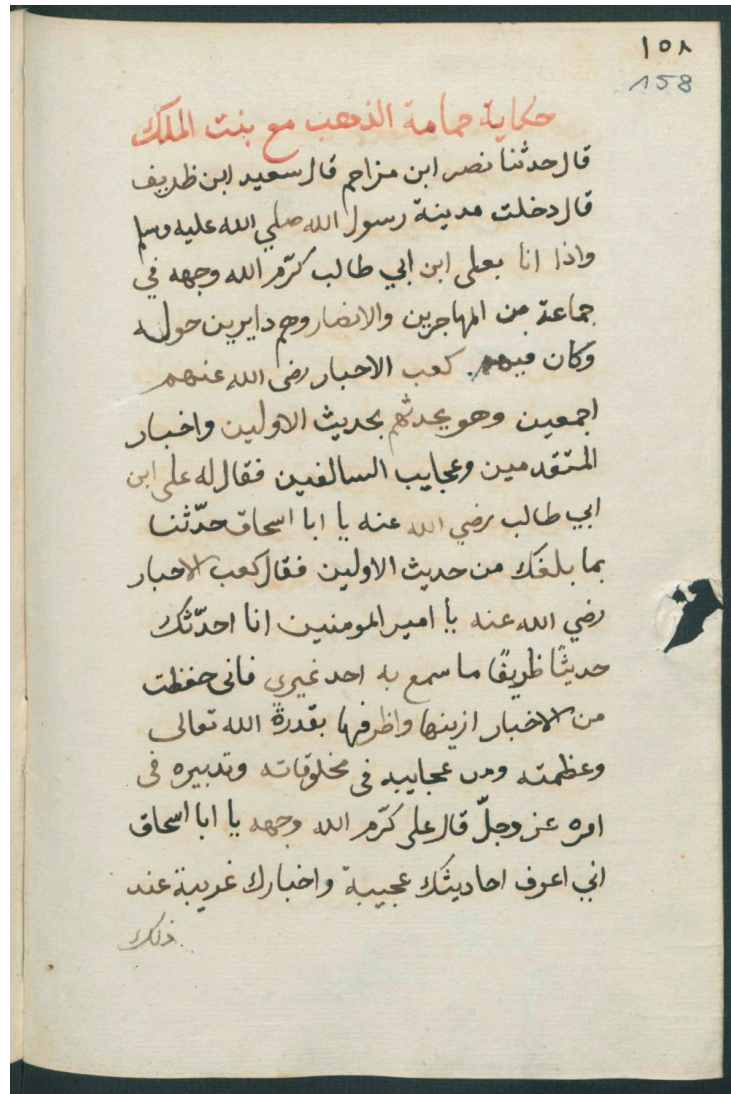 ١٥٨
158
حكاية حمامة الذهب مع بنت الملك
قال حدثنا نصر ابن مزاحم قال سعيد ابن ظريف
قال دخلت مدينة رسول الله صلي الله عليه وسلم
واذا انا بعلى ابن ابي طالب كرّم الله وجهه في
جماعة من المهاجرين والانصار وهم دايرين حوله
وكان فيهم كعب الاحبار رضى الله عنهم
اجمعين وهو يحدثهم بحديث الاولين واخبار
المتقدمين وعجايب السالفين فقال له على ابن
ابي طالب رضي الله عنه يا ابا اسحاق حدّثنا
بما بلغك من حديث الاولين فقال كعب الاحبار
رضي الله عنه يا امير المومنين انا احدّثك
حديثًا ظريفًا ما سمع به احد غيري فانى حفظت
من الاخبار ازينها واظرفها بقدرة الله تعالى
وعظمته ومن عجايبه فى مخلوقاته وتدبيره فى
امره عز وجلّ قال على كرّم الله وجهه يا ابا اسحاق
اني اعرف احاديثك عجيبة واخبارك غريبة عند
ذلك